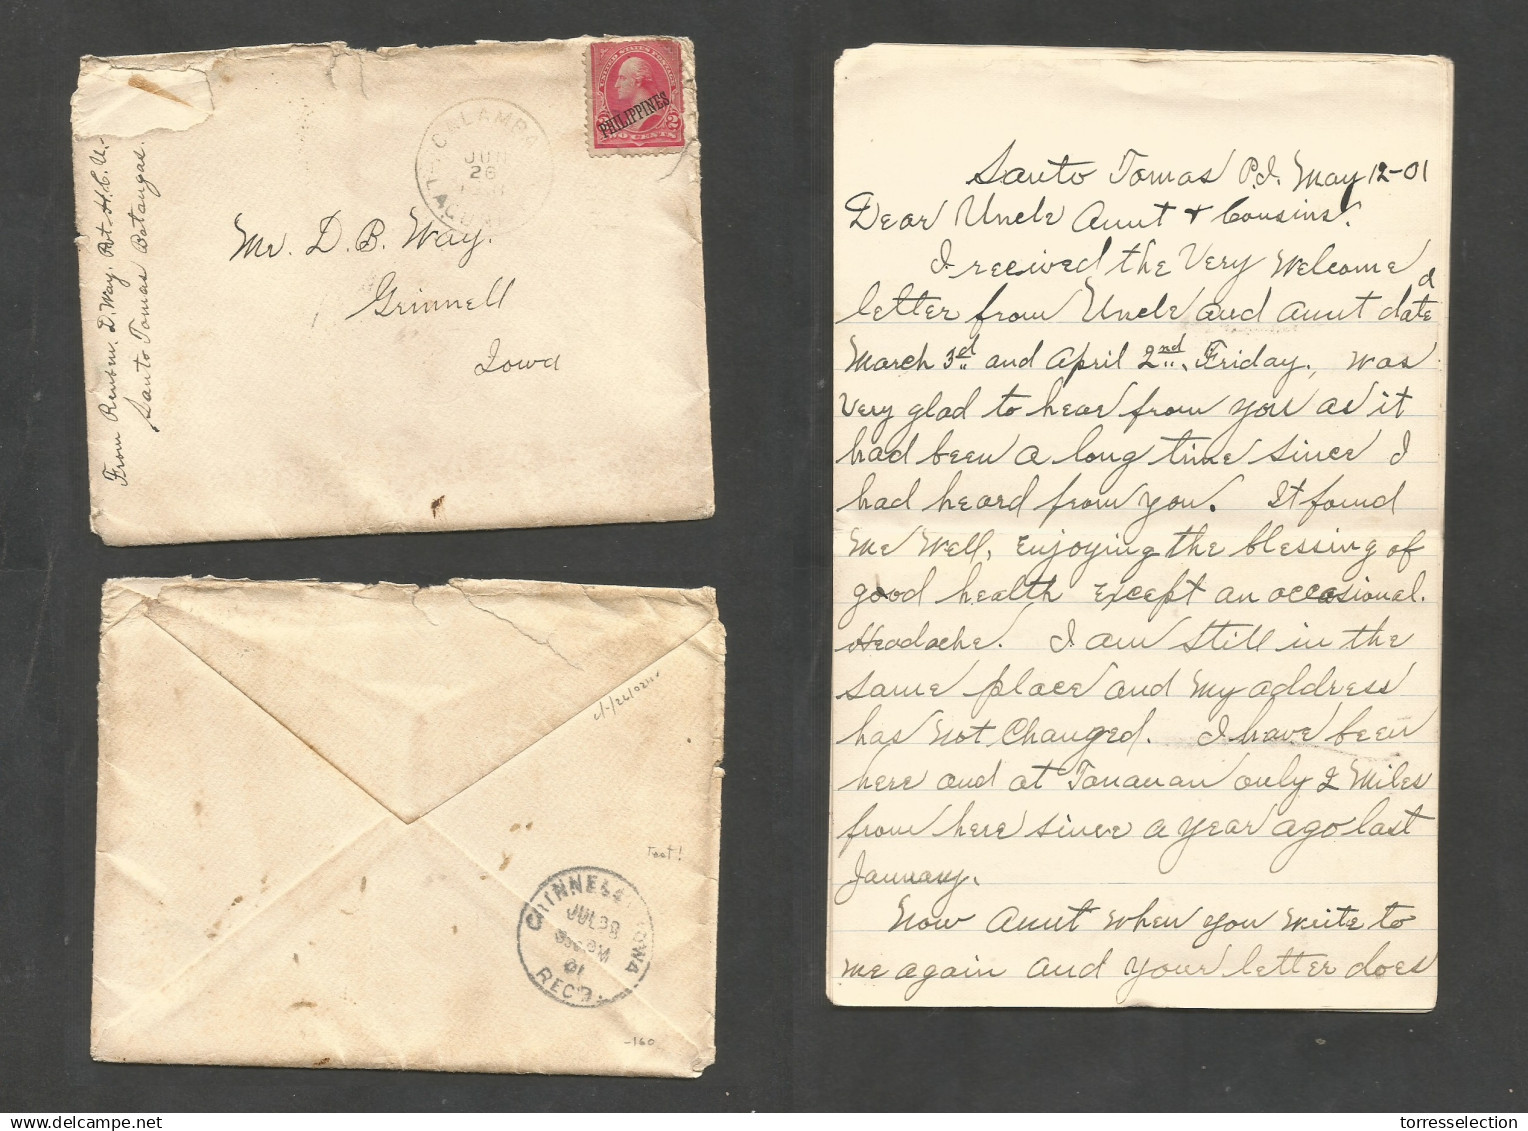 From Reuben D. Way. Pvt. H. C. U.
Santo Tomas Batangas.
CALAMBA
JUN
26
LAGUNA
UNITED STATES POSTAGE
PHILIPPINES
2 2
TWO CENTS
Mr. D. B. Way.
Grinnell
Iowa
Text!
GRINNELL IOWA
JUL 30
01
REC'D.
-160
Santo Tomas P.I. May 12-01
Dear Uncle Aunt & Cousins.
I recived the Very Welcome
letter from Uncle and Aunt dated
March 3rd and April 2nd. Friday., was
Very glad to hear from you as it
had been a long time since I
had heard from you. It found
me Well, enjoying the blessing of
good health except an occasional.
Headache. I am still in the
same place and my address
has not Changed. I have been
here and at Tanauan only 2 Miles
from here since a year ago last
January.
Now Aunt when you write to
me again and your letter does
torresselection